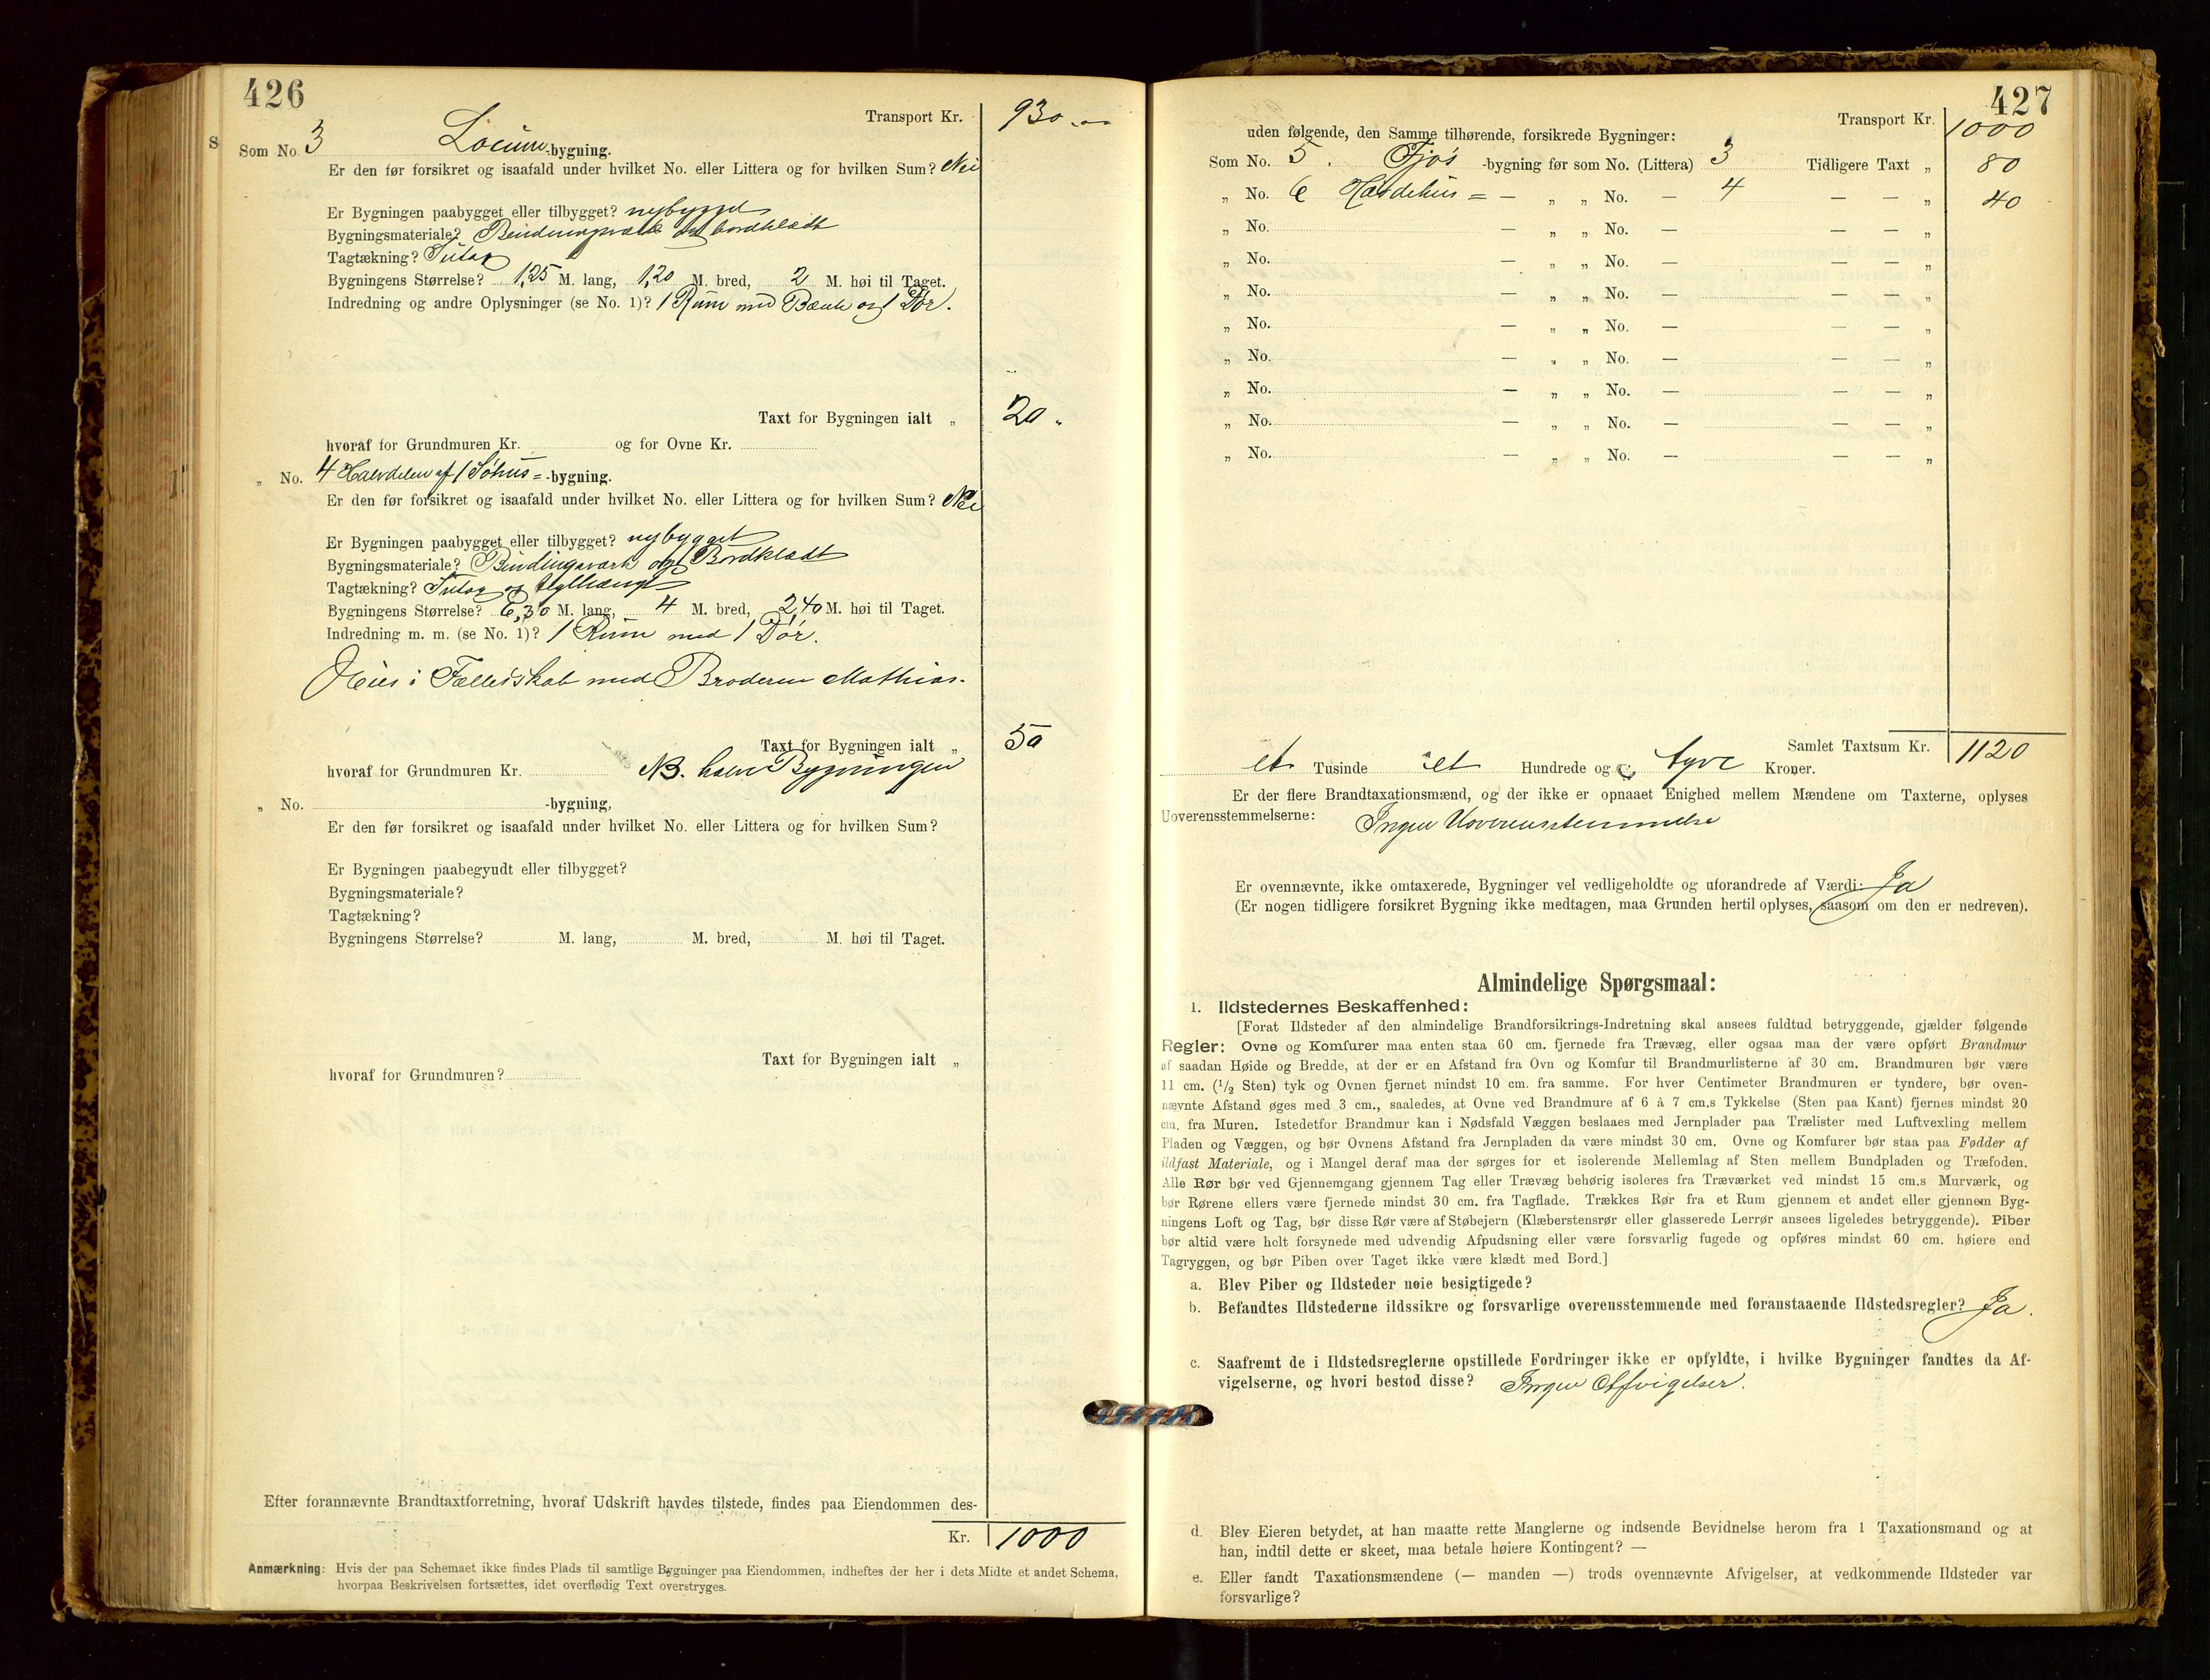 426
Transport Kr. 930
Som No. 3 Locum-bygning.
Er den før forsikret og isaafald under hvilket No. eller Littera og for hvilken Sum? Nei
Er Bygningen paabygget eller tilbygget? nybygget
Bygningsmateriale? Bindingsværk og bordklædt
Tagtækning?
Bygningens Størrelse? 1,25 M. lang, 1,20 M. bred, 2 M. høi til Taget.
Indredning og andre Oplysninger (se No. 1)? 1 Rum med Bænk og 1 Dør.
Taxt for Bygningen ialt „ 20 „
hvoraf for Grundmuren Kr. og for Ovne Kr.
„ No. 4 Halvdelen af 1 Søhus=-bygning.
Er den før forsikret og isaafald under hvilket No. eller Littera og for hvilken Sum? Nei
Er Bygningen paabygget eller tilbygget? nybygget
Bygningsmateriale? Bindingsværk og Bordklædt
Tagtækning?
Bygningens Størrelse? 6,30 M. lang, 4 M. bred, 2,40 M. høi til Taget.
Indredning m. m. (se No. 1)? 1 Rum med 1 Dør.
Eies i Fællesskab med Broderen Mathias.
Taxt for Bygningen ialt „ 50
hvoraf for Grundmuren Kr. NB. halve Bygningen
„ No. -bygning,
Er den før forsikret og isaafald under hvilket No. eller Littera og for hvilken Sum?
Er Bygningen paabegyudt eller tilbygget?
Bygningsmateriale?
Tagtækning?
Bygningens Størrelse? M. lang, M. bred, M. høi til Taget.
Taxt for Bygningen ialt „
hvoraf for Grundmuren?
Efter forannævnte Brandtaxtforretning, hvoraf Udskrift havdes tilstede, findes paa Eiendommen des-
Kr. 1000
Anmærkning: Hvis der paa Schemaet ikke findes Plads til samtlige Bygninger paa Eiendommen, indheftes der her i dets Midte et andet Schema,
hvorpaa Beskrivelsen fortsættes, idet overflødig Text overstryges.
427
Transport Kr. 1000
uden følgende, den Samme tilhørende, forsikrede Bygninger:
Som No. 5. Fjøs -bygning før som No. (Littera) 3 Tidligere Taxt „ 80
„ No. 6 Hævdehus = — „ „ No. — 4 — — „ 40
„ No. — „ „ No. — — — „
„ No. — „ „ No. — — — „
„ No. — „ „ No. — — — „
„ No. — „ „ No. — — — „
„ No. — „ „ No. — — — „
„ No. — „ „ No. — — — „
„ No. — „ „ No. — — — „
„ No. — „ „ No. — — — „
Samlet Taxtsum Kr. 1120
et Tusinde et Hundrede og tyve Kroner.
Er der flere Brandtaxationsmænd, og der ikke er opnaaet Enighed mellem Mændene om Taxterne, oplyses
Uoverensstemmelserne: Ingen Uoverensstemmelse
Er ovennævnte, ikke omtaxerede, Bygninger vel vedligeholdte og uforandrede af Værdi: Ja
(Er nogen tidligere forsikret Bygning ikke medtagen, maa Grunden hertil oplyses, saasom om den er nedreven).
Almindelige Spørgsmaal:
1. Ildstedernes Beskaffenhed:
[Forat Ildsteder af den almindelige Brandforsikrings-Indretning skal ansees fuldtud betryggende, gjælder følgende
Regler: Ovne og Komfurer maa enten staa 60 cm. fjernede fra Trævæg, eller ogsaa maa der være opført Brandmur
af saadan Høide og Bredde, at der er en Afstand fra Ovn og Komfur til Brandmurlisterne af 30 cm. Brandmuren bør være
11 cm. (1/2 Sten) tyk og Ovnen fjernet mindst 10 cm. fra samme. For hver Centimeter Brandmuren er tyndere, bør oven-
nævnte Afstand øges med 3 cm., saaledes, at Ovne ved Brandmure af 6 à 7 cm.s Tykkelse (Sten paa Kant) fjernes mindst 20
cm. fra Muren. Istedetfor Brandmur kan i Nødsfald Væggen beslaaes med Jernplader paa Trælister med Luftvexling mellem
Pladen og Væggen, og bør Ovnens Afstand fra Jernpladen da være mindst 30 cm. Ovne og Komfurer bør staa paa Fødder af
ildfast Materiale, og i Mangel deraf maa der sørges for et isolerende Mellemlag af Sten mellem Bundpladen og Træfoden.
Alle Rør bør ved Gjennemgang gjennem Tag eller Trævæg behørig isoleres fra Træværket ved mindst 15 cm.s Murværk, og
bør Rørene ellers være fjernede mindst 30 cm. fra Tagflade. Trækkes Rør fra et Rum gjennem et andet eller gjennem Byg-
ningens Loft og Tag, bør disse Rør være af Støbejern (Klæberstensrør eller glasserede Lerrør ansees ligeledes betryggende). Piber
bør altid være helt forsynede med udvendig Afpudsning eller være forsvarlig fugede og opføres mindst 60 cm. høiere end
Tagryggen, og bør Piben over Taget ikke være klædt med Bord.]
a. Blev Piber og Ildsteder nøie besigtigede?
b. Befandtes Ildstederne ildssikre og forsvarlige overensstemmende med foranstaaende Ildstedsregler? Ja.
c. Saafremt de i Ildstedsreglerne opstillede Fordringer ikke er opfyldte, i hvilke Bygninger fandtes da Af-
vigelserne, og hvori bestod disse? Ingen Afvigelser.
d. Blev Eieren betydet, at han maatte rette Manglerne og indsende Bevidnelse herom fra 1 Taxationsmand og at
han, indtil dette er skeet, maa betale høiere Kontingent? —
e. Eller fandt Taxationsmændene (— manden —) trods ovennævnte Afvigelser, at vedkommende Ildsteder var
forsvarlige?